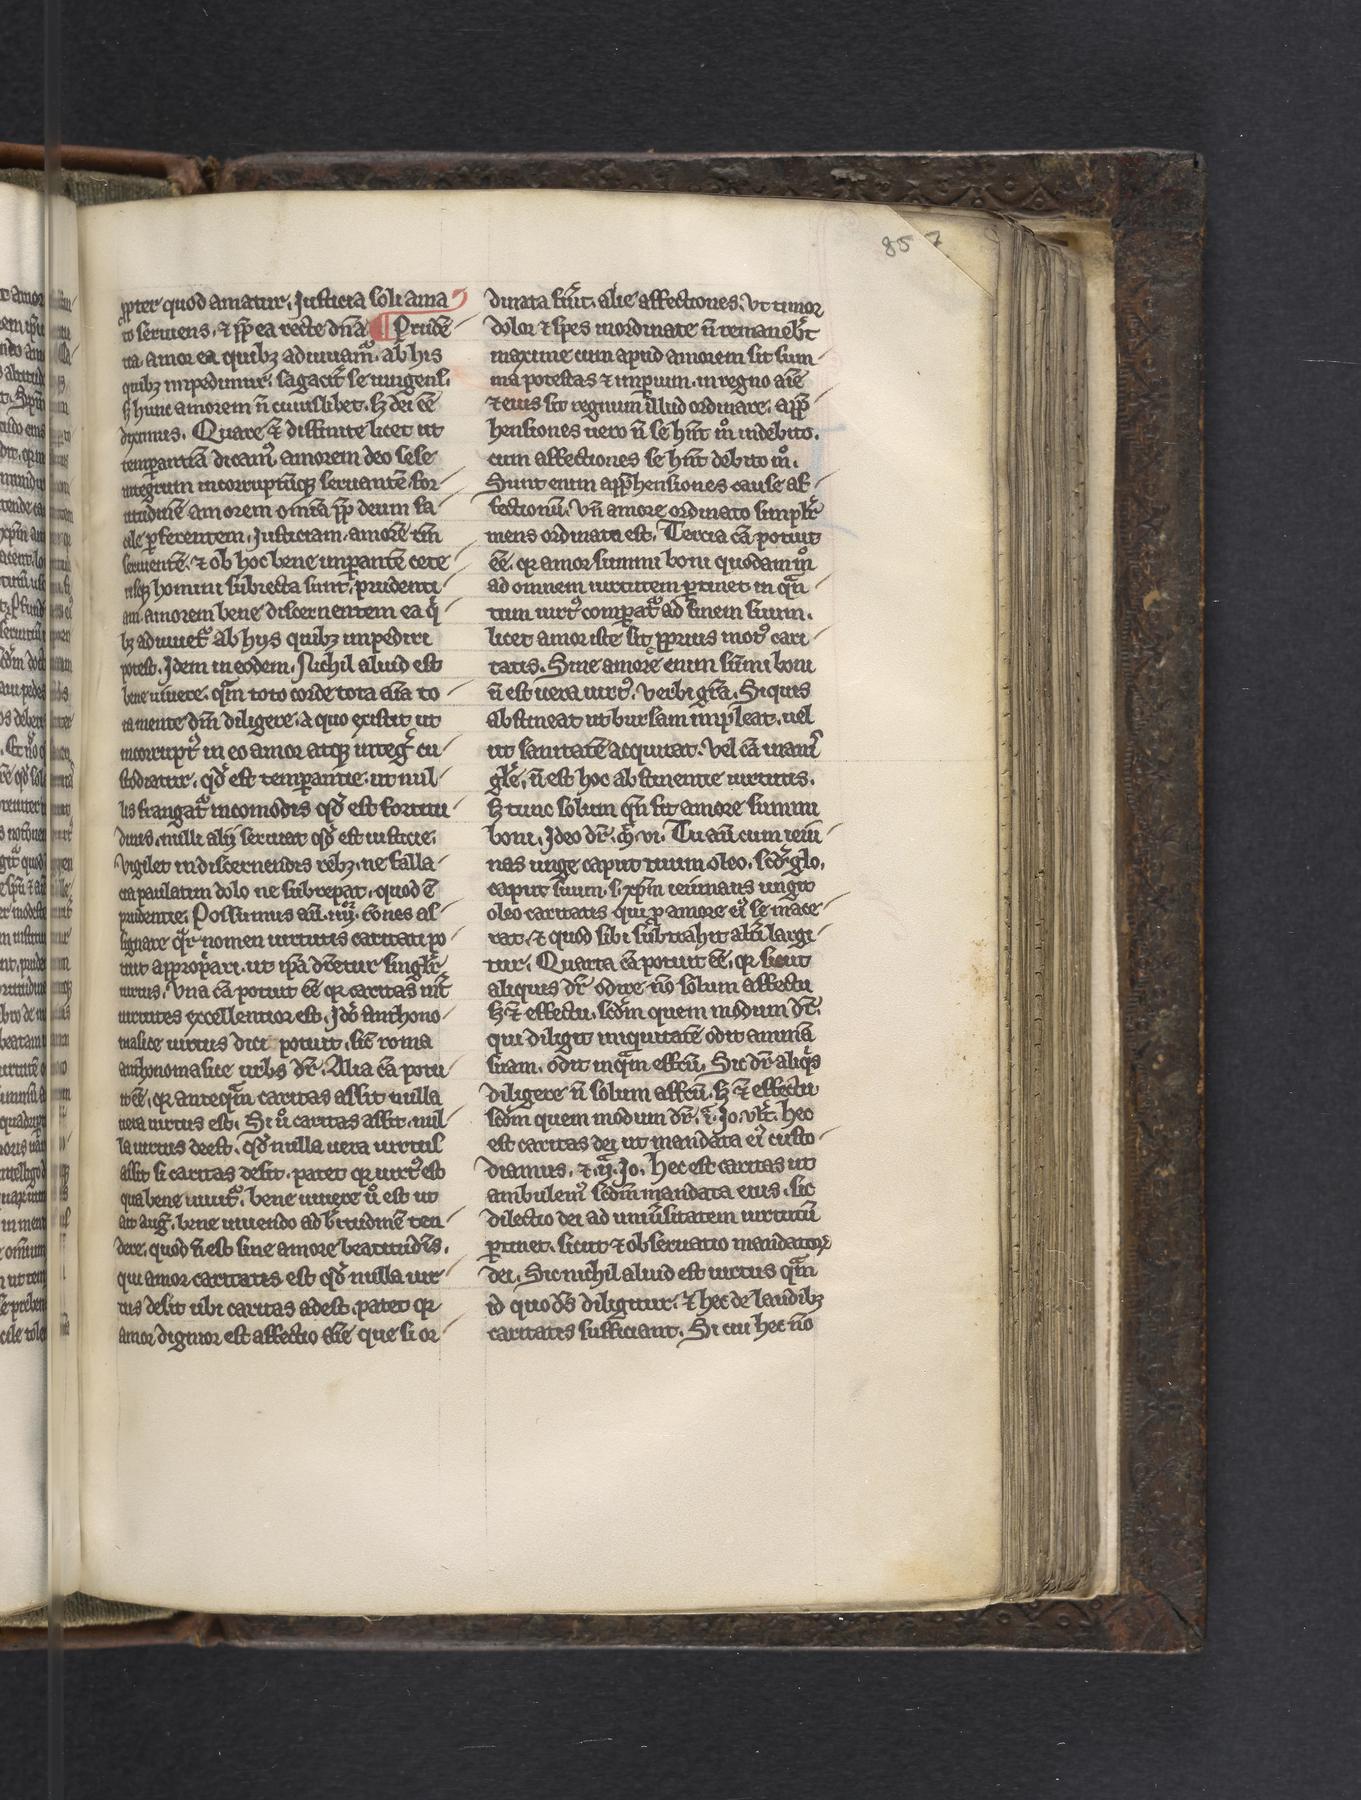 85 7
ꝓpter quod amatur. Justicia soli ama
to seruiens. ⁊ ꝓp̄ ea recte dn̄a ¶ Prudē
tia. amor ea quibꝫ adiuuam̄. ab his
quibꝫ impedimur. sagacit̄ seiungens.
Sꝫ hunc amorem n̄ cuiuslibet. sꝫ dei eē
diximus. Quare ⁊ diffinire licet ut
temperantiā dicamꝰ amorem deo sese
integrum incorruptūqꝫ seruantē for
titudinē amorem omīa ꝓp̄ deum fa
cile ꝑferentem. Justiciam. amorē tm̄
seruientē. ⁊ ob hoc bene imperantē cete
risqꝫ homini subiecta sunt. prudenti
am. amorem bene discernentem ea q̄
bꝫ adiuuet̄ ab hys quibꝫ impediri
potest. Idem in eodem. Nichil aliud est
bene uiuere. qm̄ toto corde tota aīa to
ta mente dm̄ diligere. a quo existit ut
incorruptꝰ in eo amor atqꝫ inteḡ cu
stodiatur. qd̄ est temperantie. ut nul
lis frangat̄ incomodis qd̄ est fortitu
dinis. nulli alij seruiat qd̄ est iusticie.
Vigilet in discernendis rebꝫ. ne falla
cia paulatim dolo ne subrepat. quod ē
prudentie. Possumus aū. iiij. cōnes as
signare q̄r nomen uirtutis caritati po
tuit appropari. ut ipā dr̄etur singlr̄
uirtus. Vna cā potuit eē qꝛ caritas int̄
uirtutes excellentior est. Idō anthono
masice uirtus dici potuit. sic̄ roma
anthonomasice urbs dr̄. Alia cā potu
it eē. qꝛ anteqm̄ caritas assit nulla
uera uirtus est. Si ů caritas assit. nul
la uirtus deest. qd̄ nulla uera uirtus
assit si caritas desit. patet qꝛ uirtꝰ est
qua bene uiuit̄. bene uiuere ů est ut
ait auḡ. bene uiuendo ad b̄titudinē ten
dere. quod n̄ est sine amore beatitudīs.
qui amor caritatis est qd̄ nulla uir
tus desit ubi caritas adest. patet qꝛ
amor dignior est affectio aīe que si or
dinata fūit. alie affectiones. vt timor
dolor ⁊ spes inordinate n̄ remaneb̄t
maxime cum apud amorem sit sum
ma potestas ⁊ imperium. in regno aīe
⁊ eius sit regnum illud ordinare. app̄
hensiones uero n̄ se hn̄t mº indebito.
cum affectiones se hn̄t debito mº.
Sunt enim app̄hensiones cause af
fectionū. Vn̄ amore ordinato simplr̄
mens ordinata est. Tercia cā potuit
eē. qꝛ amor summi boni quodam mº
ad omnem uirtutem ꝑtinet in qn̄
tum uirtꝰ comparat̄ ad finem suum.
licet amor iste sit ꝓprius motꝰ cari
tatis. Sine amore enim sūmi boni
n̄ est uera uirtꝰ. Verbi gr̄a. Si quis
abstineat ut bursam impleat. uel
ut sanitatē acquirat. Vel cā inanis
glē. n̄ est hoc abstinentie uirtutis.
Sꝫ tunc solum qn̄ fit amore summi
boni. Ideo dr̄. M̄. vi. Tu aū cum ieiu
nas unge caput tuum oleo. scd̄ glo.
caput suum. s. xpm̄ ieiunans ungit
oleo caritatis qui ꝓ amore eiꝰ se mace
rat. ⁊ quod sibi subtrahit alt̄i largi
tur. Quarta cā potuit eē. qꝛ sicut
aliquis dr̄ odire nō solum affectu
sꝫ ⁊ effectu. scdm̄ quem modum dr̄.
qui diligit iniquitatē odit animā
suam. odit inqm̄ effcū. Sic dr̄ aliqs
diligere n̄ solum affcū. sꝫ ⁊ effectu
scdm̄ quem modum dr̄. i. Jo. vlt̄. hec
est caritas dei ut mandata eiꝰ custo
diamus. ⁊. ij. Jo. Hec est caritas ut
ambulemꝰ scdm̄ mandata eius. sic
dilectio dei ad uniu̅sitatem uirtutū
ꝑtinet. sicut ⁊ obseruatio mandatoꝝ
dei. Sic nichil aliud est uirtus qm̄
id quo d̄s diligitur. ⁊ hec de laudibꝫ
caritatis sufficiant. Si cui hec nō